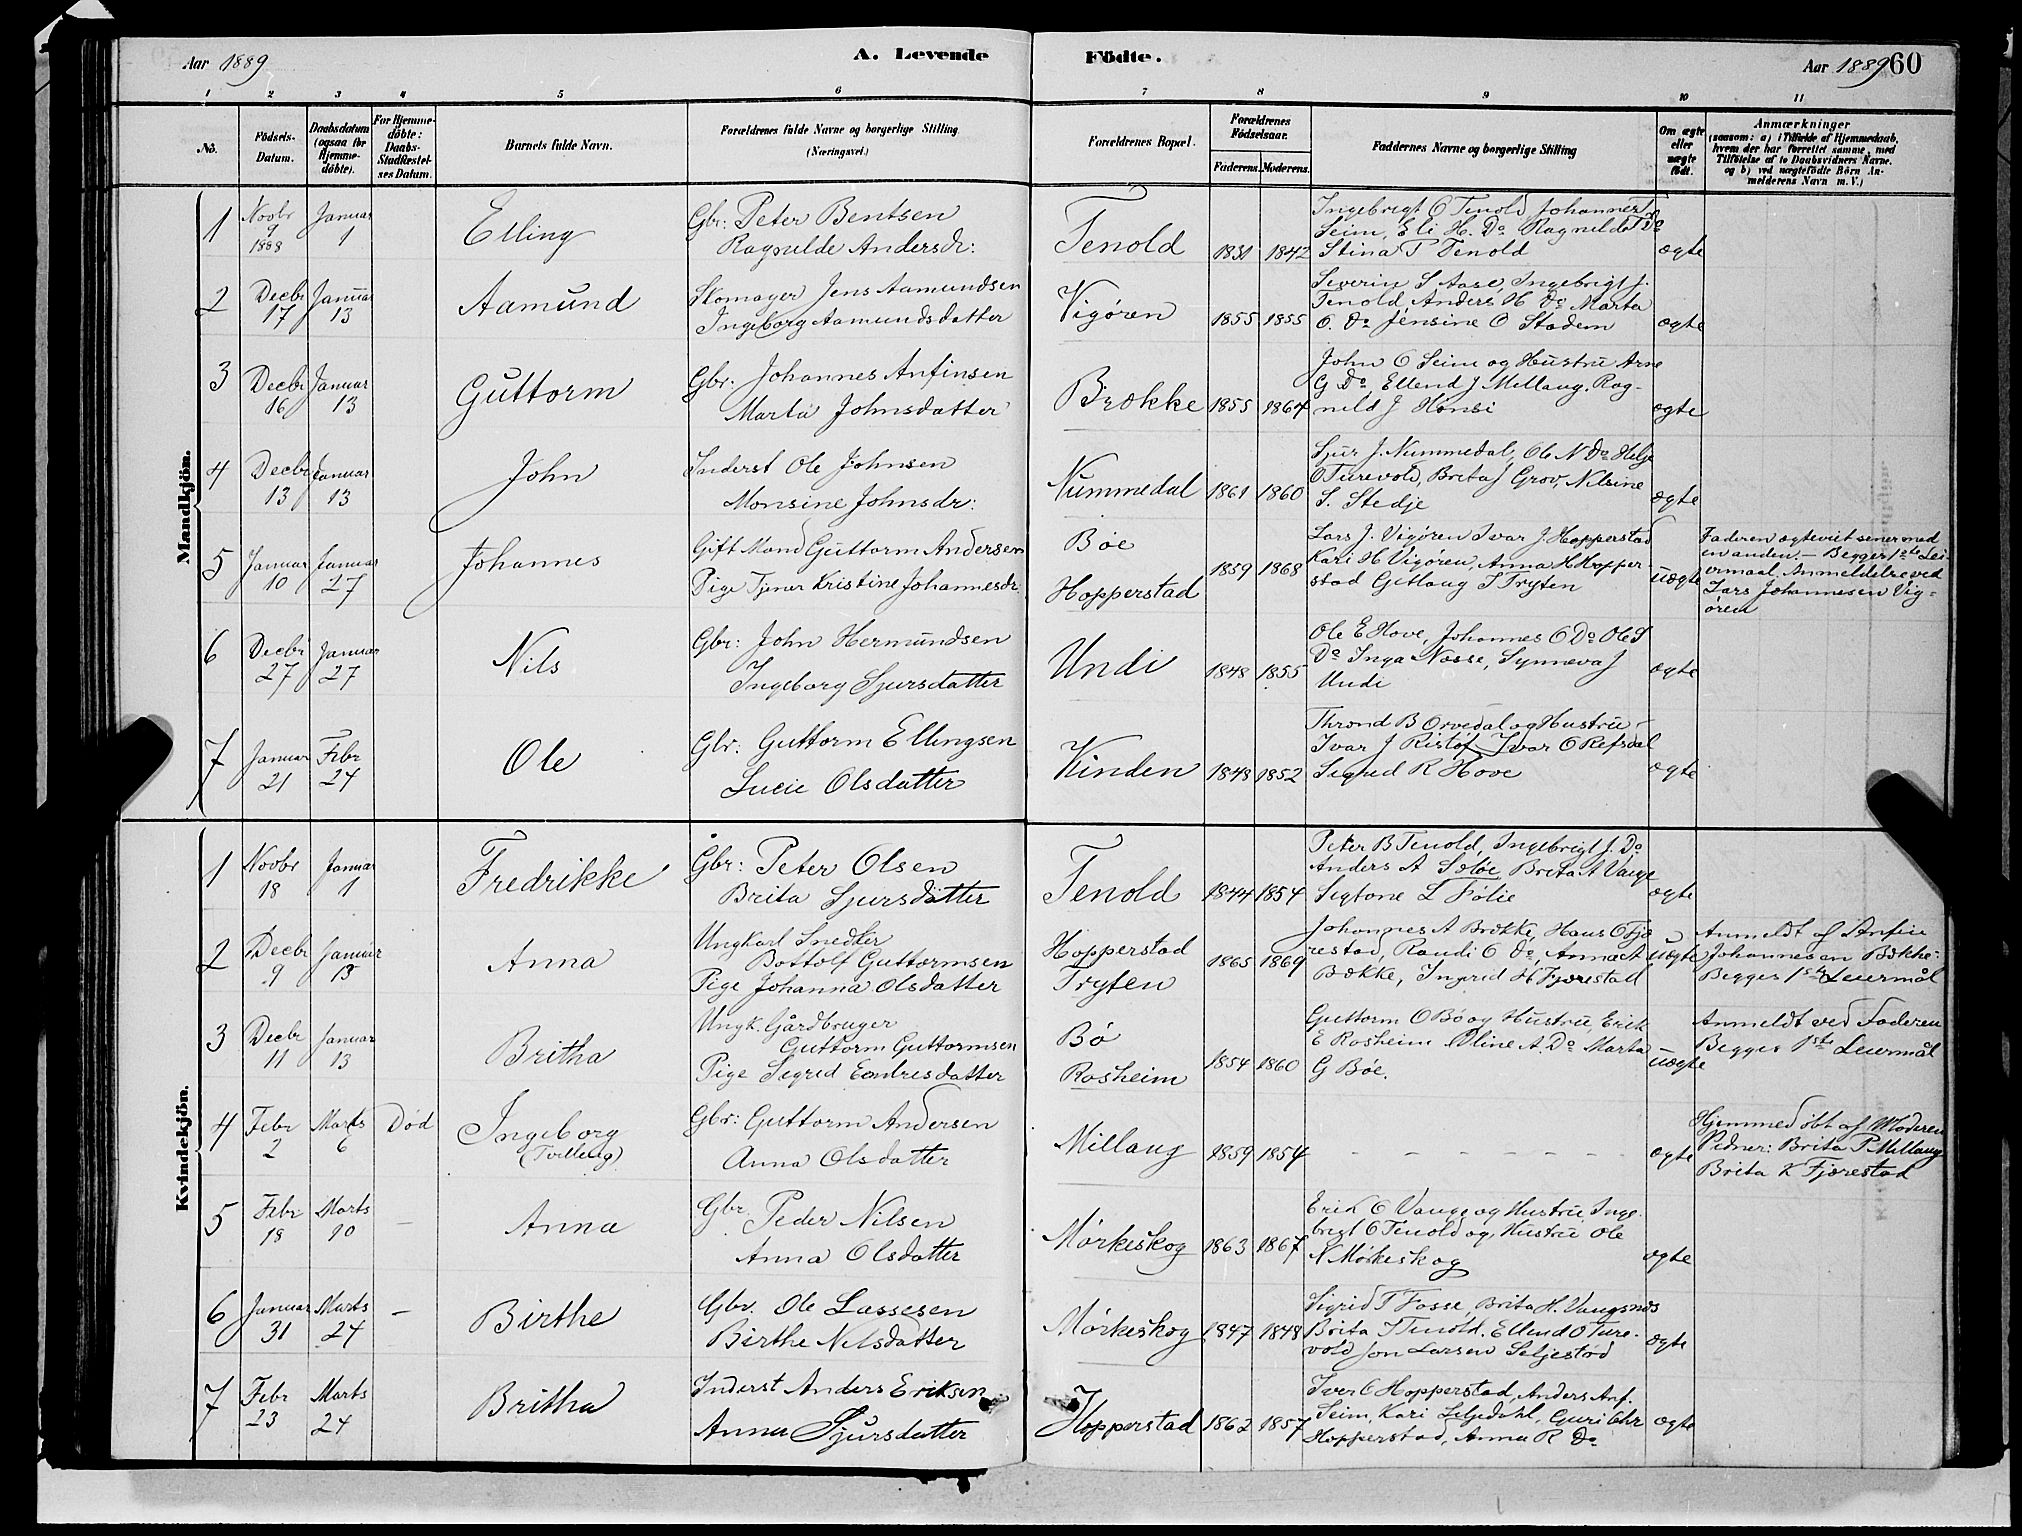 Aar 1889 A. Levende Födte. Aar 1889 60
1 2 3 4 5 6 7 8 9 10 11
No. Födsels-Datum. Daabsdatum (ogsaa for Hjemme-döbte). For Hjemme-döbte: Daabs-Stadfæstel-ses Datum. Barnets fulde Navn. Forældrenes fulde Navne og borgerlige Stilling (Næringsvei.) Forældrenes Bopæl. Forældrenes Födselsaar. Faderens. Moderens. Faddernes Navne og borgerlige Stilling Om ægte eller uægte födt. Anmærkninger
(saasom: a) i Tilfælde af Hjemmedaab, hvem der har forrettet samme, med Tilföielse af to Daabsvidners Navne. og b) ved uægtefödte Börn An-melderens Navn m. V.)
Mandkjön.
1 Novbr 9 1888 Januar 1 Elling Gbr: Peter Bentsen
Ragnilde Andersdr: Tenold 1831 1842 Ingebrigt O Tenold Johannes T
Seim, Eli H. Do Ragnilde T Do
Stina P Tenold ægte
2 Decbr 17 Januar 13 Aamund Skomager Jens Aamundsen
Ingeborg Aamundsdatter Vigøren 1855 1855 Severin S Aase, Ingebrigt J.
Tenold Anders H Do Marta
O. Do Jensine O Stadem ægte
3 Decbr 16 Januar 13 Guttorm Gbr: Johannes Anfinsen
Marta Johnsdatter Brække 1855 1864 John O Seim og Hustru Arne
G Do, Ellend J Millaug. Rag-
nild J Hønsi ægte
4 Decbr 13 Januar 13 John Inderst Ole Johnsen
Monsine Johnsdr: Nummedal 1861 1860 Sjur J. Nummedal, Ole N Do Helje
O Turevold, Brita J Grov, Nilsine
S. Stedje ægte
5 Januar 10 Januar 27 Johannes Gift Mand Guttorm Andersen
Pige Tjener Kristine Johannesdr Bøe
Hopperstad 1859 1868 Lars J. Vigøren Ivar J. Hopperstad
Kari H Vigøren, Anna H Hopper
stad Gitlaug I Tryten uægte Faderen ægteviet senere med
en anden. — Begges 1ste Lei-
ermaal. Anmeldelse ved
Lars Johannesen Vig-
øren
6 Decbr 27 Januar 27 Nils Gbr: John Hermundsen
Ingeborg Sjursdatter Undi 1848 1855 Ole E Hove, Johannes O Do Ole S
Do Inga Næsse, Synneva J
Undi ægte
7 Januar 21 Febr 24 Ole Gbr: Guttorm Ellingsen
Lucie Olsdatter Kinden 1848 1852 Thrond B Orvedal og Hustru
Ivar J Ristøf Ivar O Refsdal
Sigrid R Hove ægte
Kvindekjön.
1 Novbr 18 Januar 1 Fredrikke Gbr: Peter Olsen
Brita Sjursdatter Tenold 1844 1854 Peter B Tenold, Ingebrigt J. Do
Anders A Sæløe, Brita A Vange
Sigtone L Følie ægte
2 Decbr 9 Januar 13 Anna Ungkarl Snedker
Bottolf Guttormsen
Pige Johanna Olsdatter Hopperstad
Tryten 1865 1869 Johannes A Brække, Hans O Fjæ
restad, Randi O Do, Anna A
Brække, Ingrid H Fjærestad uægte Anmeldt af Anfin
Johannesen Brække.
Begges 1ste Leiermål
3 Decbr 11 Januar 13 Britha Ungk. Gårdbruger
Guttorm Guttormsen
Pige Sigrid Endresdatter Bø
Rosheim 1854 1860 Guttorm O Bø og Hustru, Erik
E Rosheim Oline A. Do Marta
G Bøe. uægte Anmeldt ved Faderen
Begges 1ste Leiermål
4 Febr 2 Marts 6 Død Ingeborg
(Tvilling) Gbr: Guttorm Andersen
Anna Olsdatter Millaug 1859 1854 ægte Hjemmedøbt af Moderen
Vidner: Brita P Millaug
Brita K Fjærestad
5 Febr 18 Marts 10 — Anna Gbr. Peder Nilsen
Anna Olsdatter Mørkeskog 1863 1867 Erik O Vange og Hustru, Inge-
brigt O Tenold og Hustru Ole
N Mørkeskog ægte
6 Januar 31 Marts 24 — Birthe Gbr. Ole Lassesen
Birthe Nilsdatter Mørkeskog 1847 1848 Sigrid T Fosse, Brita H. Vangsnæs
Brita I Tenold. Ellend O Ture-
vold Jon Larsen Seljestød ægte
7 Febr 23 Marts 24 Britha Inderst Anders Eriksen
Anna Sjursdatter Hopperstad 1862 1857 Iver O Hopperstad, Anders Anf.
Seim, Kari Seljedahl, Guri Chr
Hopperstad, Anna R Do ægte